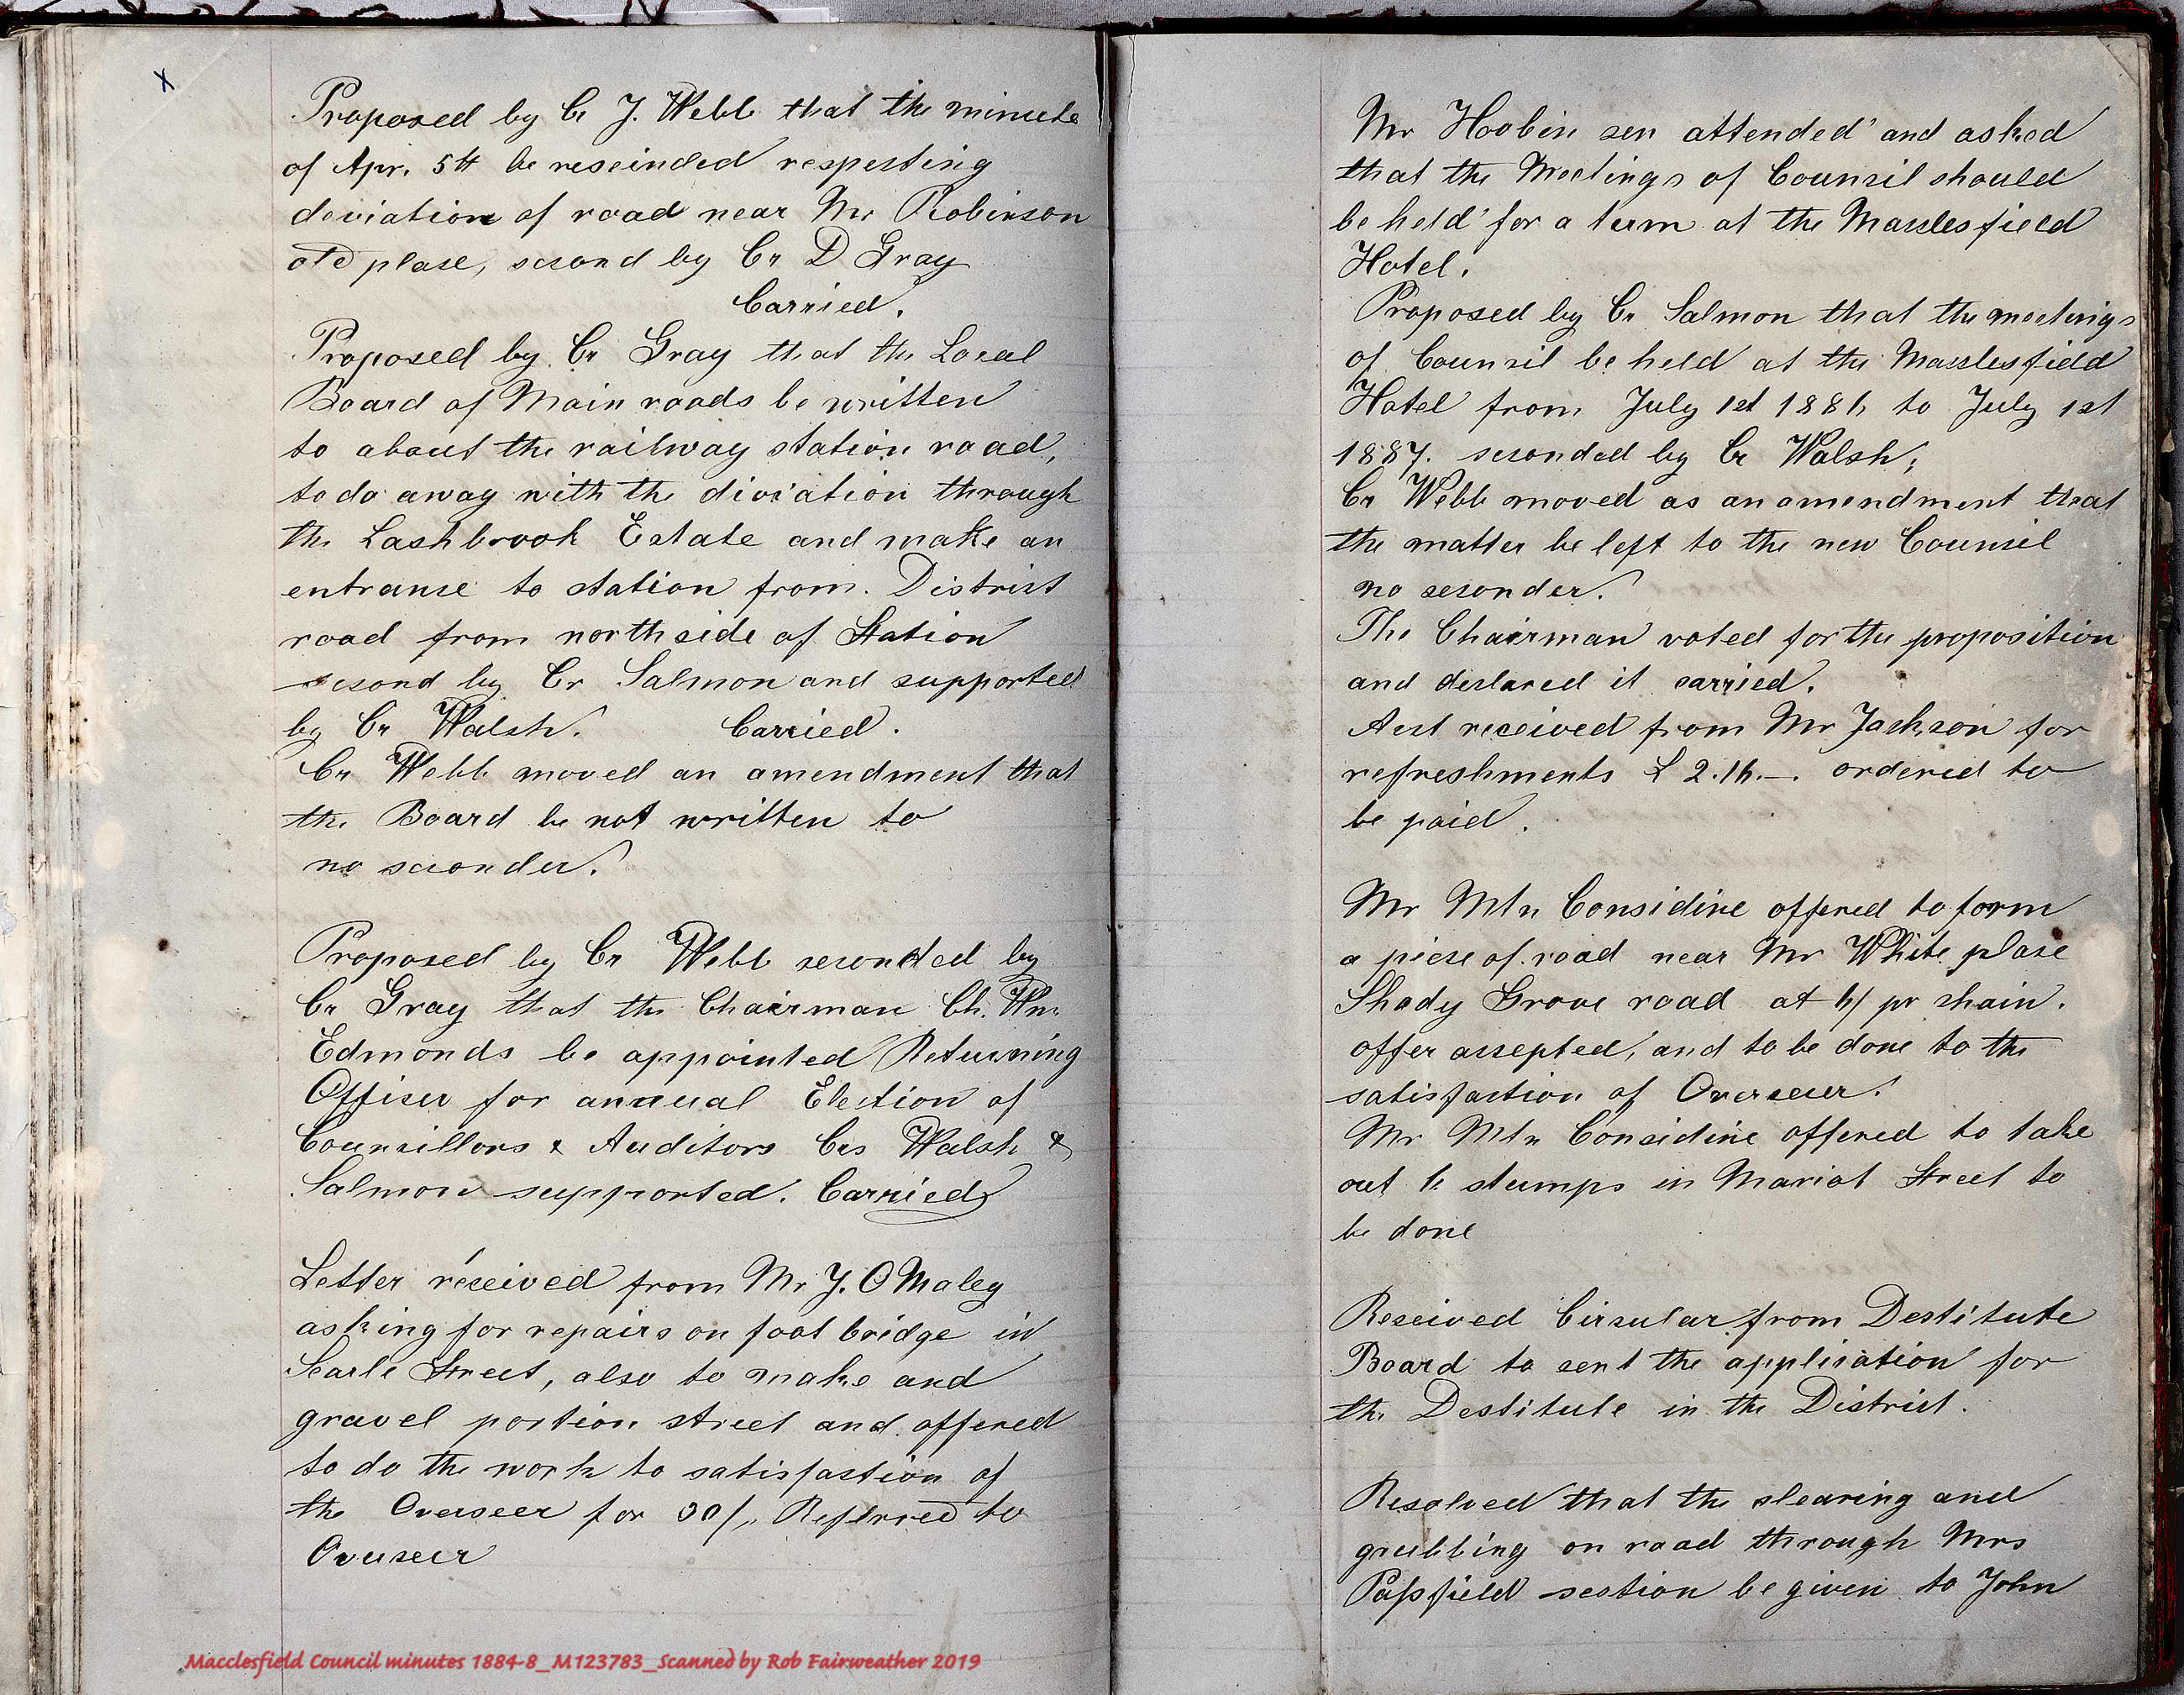 x
Proposed by Cr J. Webb that the minute
of Apr. 5th be rescinded respecting
deviation of road near Mr Robinson
old place, second by Cr D Gray
Carried.
Proposed by Cr Gray that the Local
Board of Main roads be written
to about the railway station road,
to do away with the diviation through
the Lashbrook Estate and make an
entrance to station from District
road from northside of Station
second by Cr Salmon and supported
by Cr Walsh. Carried.
Cr Webb moved an amendment that
the Board be not written to
no seconder.
Proposed by Cr Webb seconded by
Cr Gray that the Chairman Ch. Wm
Edmonds be appointed Returning
Officer for annual Election of
Councillors & Auditors Crs Walsh &
Salmon supported. Carried
Letter received from Mr J. O Maley
asking for repairs on foot bridge in
Searle Street, also to make and
gravel portion street and offered
to do the work to satisfaction of
the Overseer for Referred to
Overseer
Macclesfield Council minutes 1884-8_M123783_Scanned by Rob Fairweather 2019
Mr Hoobin sen attended and asked
that the Meetings of Council should
be held for a term at the Macclesfield
Hotel.
Proposed by Cr Salmon that the meetings
of Council be held at the Macclesfield
Hotel from July 1st 1886 to July 1st
1887. seconded by Cr Walsh,
Cr Webb moved as an amendment that
the matter be left to the new Council
no seconder.
The Chairman voted for the proposition
and declared it carried.
Acct received from Mr Jackson for
refreshments £ 2.16.–. ordered to
be paid.
Mr Mtn Considine offered to form
a piece of road near Mr White place
Shady Grove road at 6/ pr chain.
offer accepted, and to be done to the
satisfaction of Overseer.
Mr Mtn Considine offered to take
out 6 stumps in Mariot Street to
be done
Received Circular from Destitute
Board to sent the application for
the Destitute in the District.
Resolved that the clearing and
grubbing on road through Mrs
Passfield section be given to John